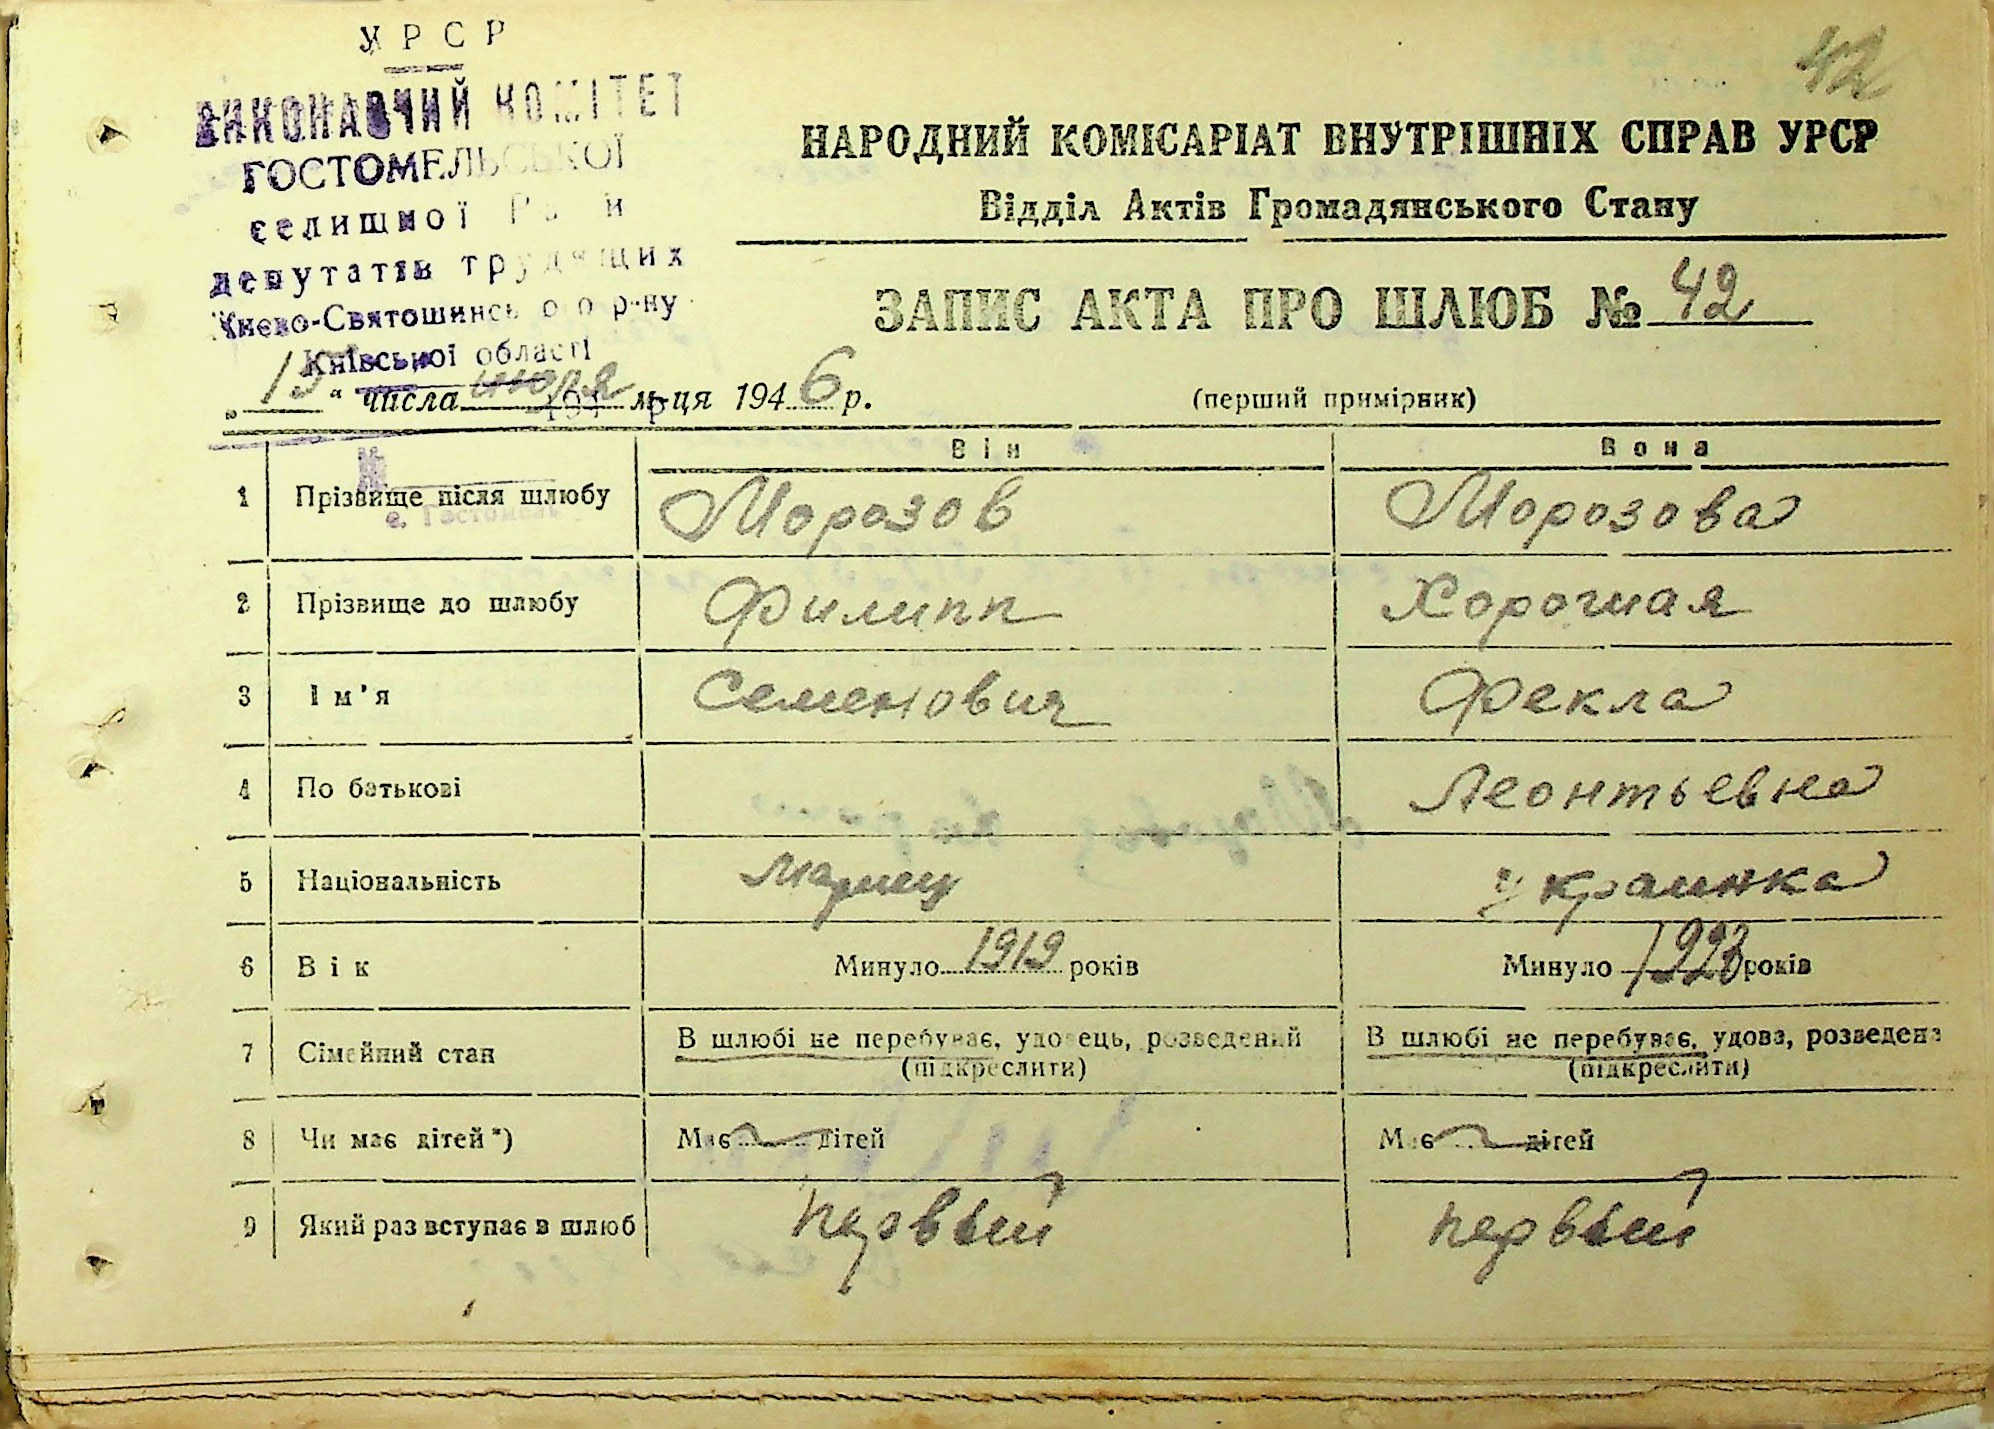 42
УРСР
ВИКОНАВЧИЙ КОМІТЕТ
ГОСТОМЕЛЬСЬКОЇ
селищної Ради
депутатів трудящих
Києво-Святошинського р-ну
Київської області
НАРОДНИЙ КОМІСАРІАТ ВНУТРІШНІХ СПРАВ УРСР
Відділ Актів Громадянського Стану
ЗАПИС АКТА ПРО ШЛЮБ № 42
„15“ числа июля м-ця 1946 р.
(перший примірник)
194 р
№
с. Гостомель
Він Вона
1 Прізвище після шлюбу Морозов Морозова
2 Прізвище до шлюбу Филипп Хорошая
3 Ім'я Семенович Фекла
4 По батькові Леонтьевна
5 Національність мариец украинка
6 Вік Минуло 1919 років Минуло 1923 років
7 Сімейний стан В шлюбі не перебуває, удовець, розведений В шлюбі не перебуває, удова, розведена
(підкреслити) (підкреслити)
8 Чи має дітей*) Має дітей Має дітей
9 Який раз вступає в шлюб первый первый